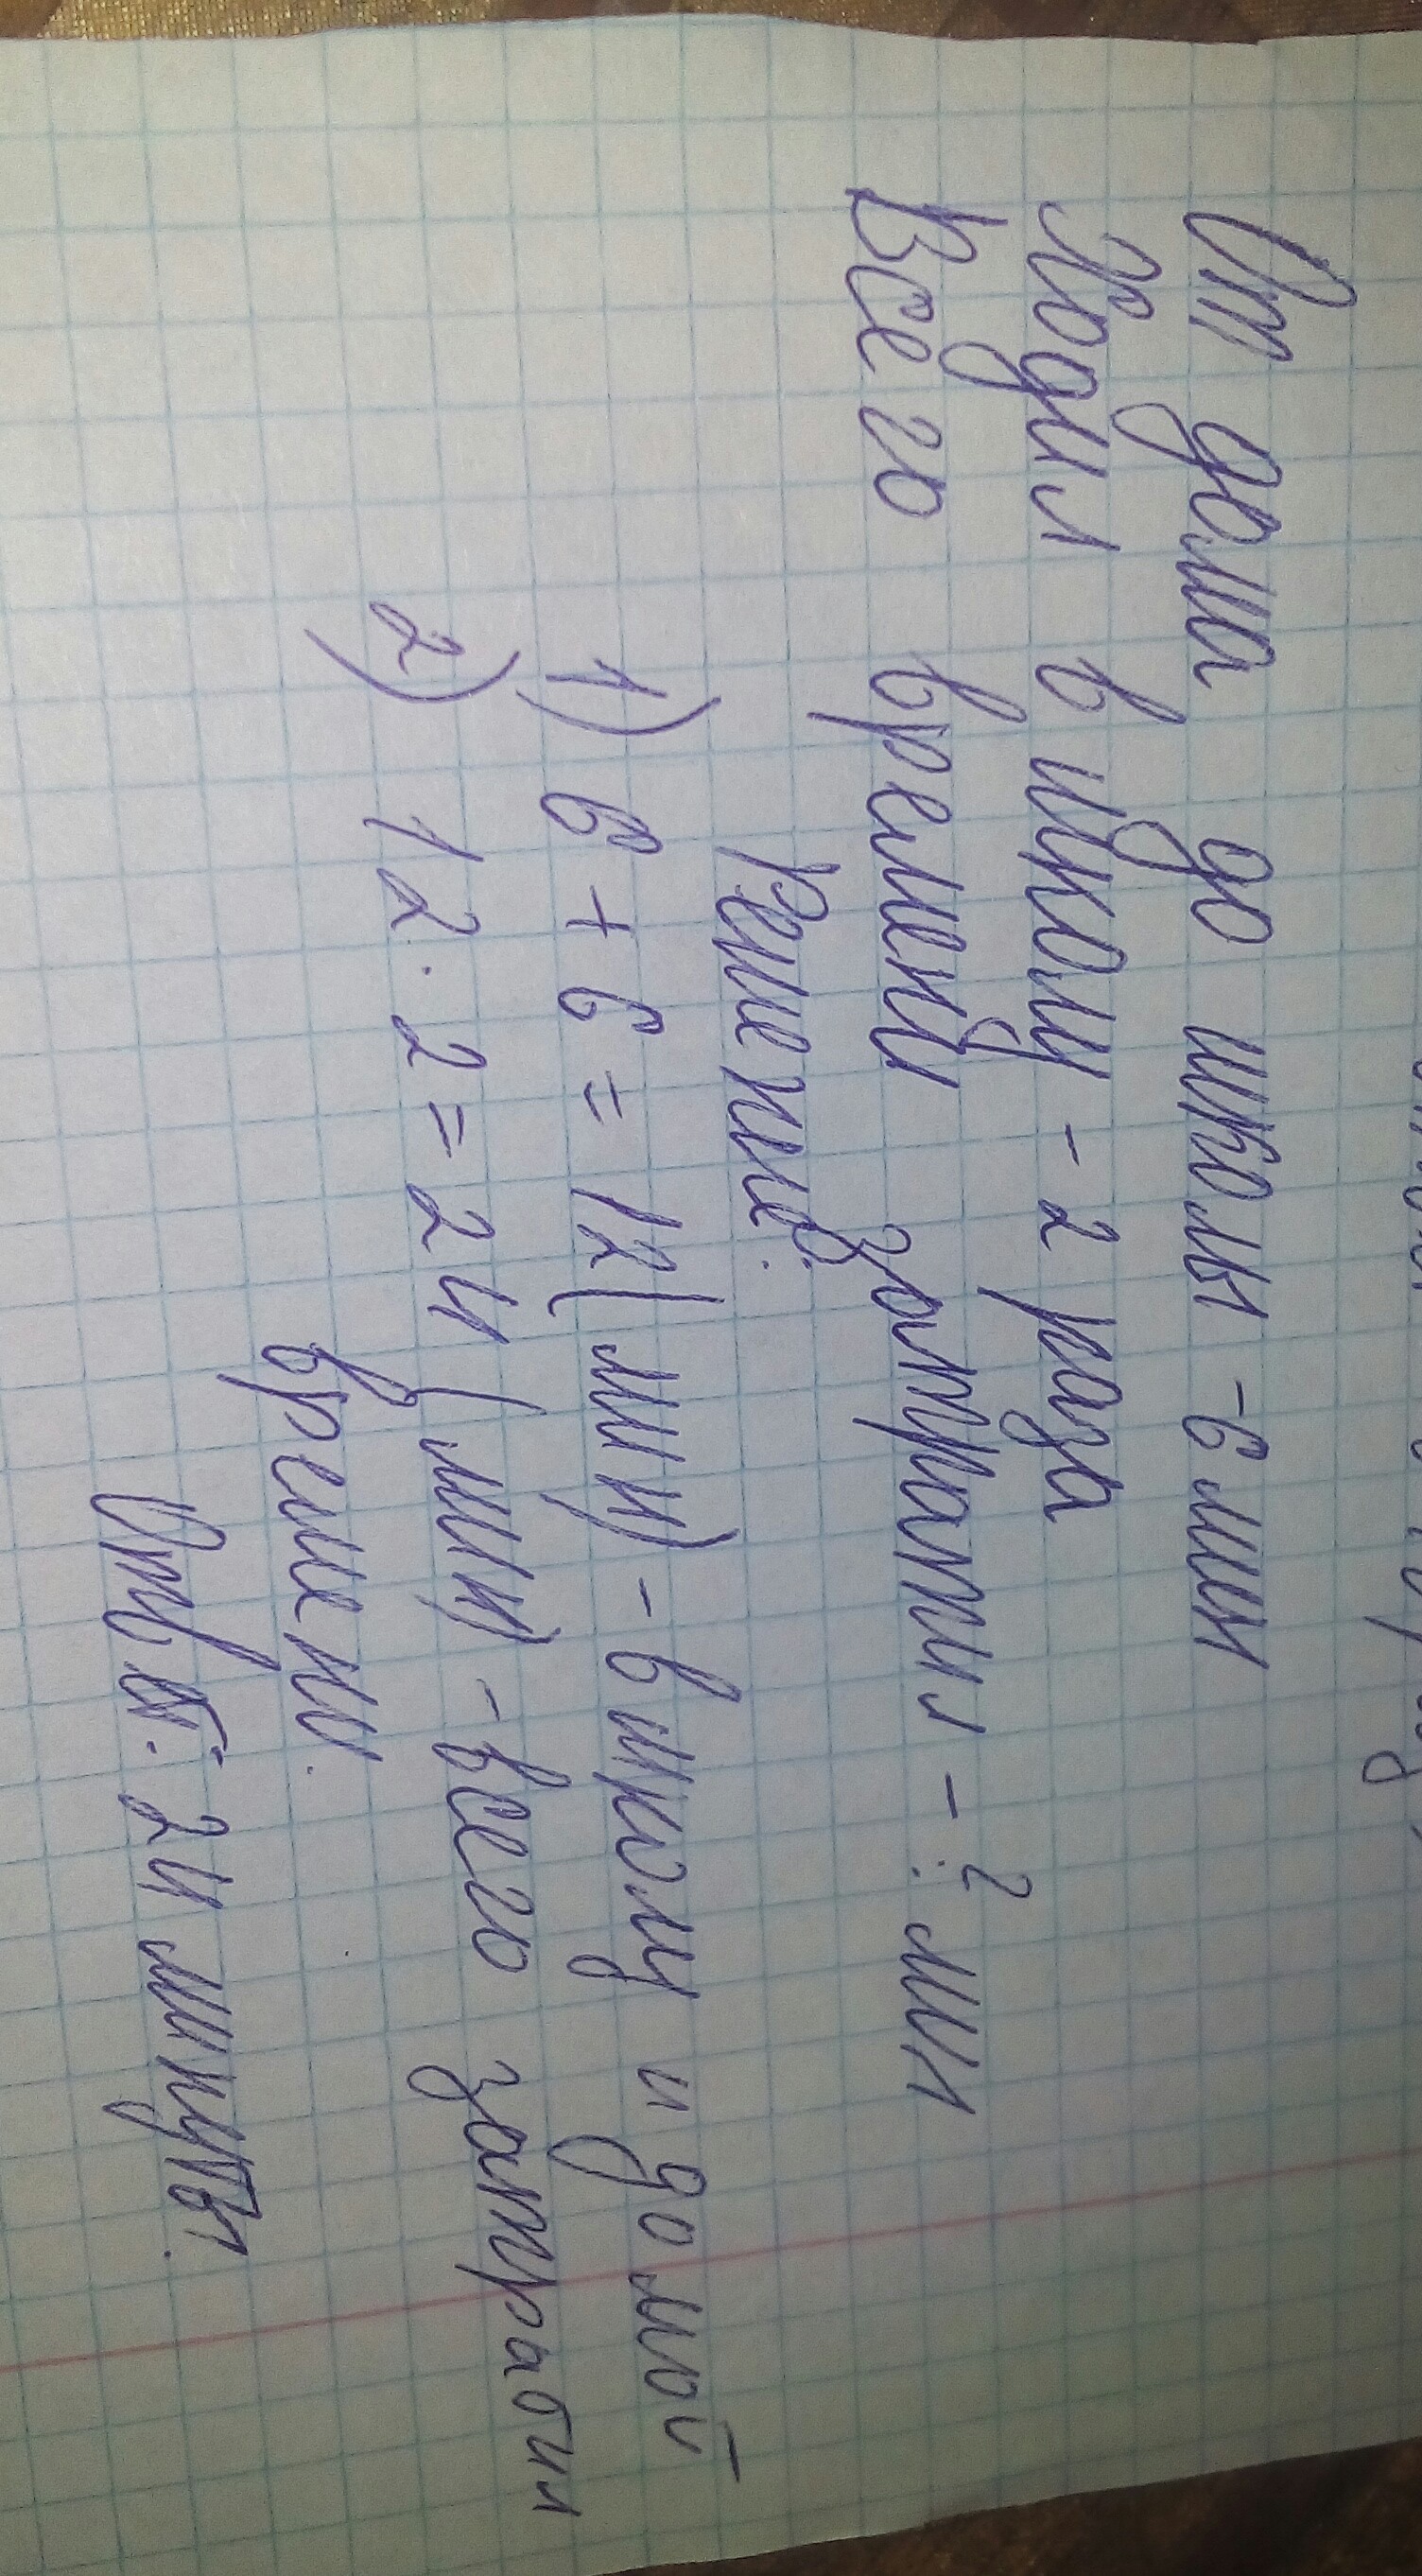 От дома до школы - 6 мин
Ходил в школу - 2 раза
Всего времени затратил - ? мин
Решение:
1) 6 + 6 = 12 (мин) - в школу и домой
2) 12 · 2 = 24 (мин) - всего затратил
времени.
Ответ: 24 минуты.